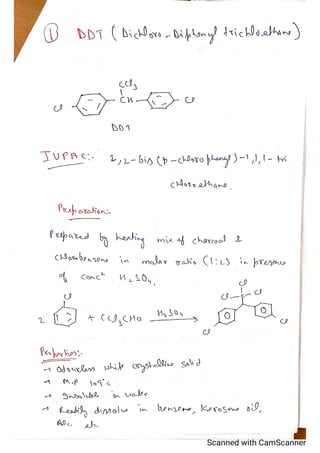 ① DDT (Dichloro-Diphenyl trichloethane)
CCl3
Cl CH Cl
DDT
IUPAC:- 2,2-bis (p-chlorophenyl)-1,1,1-tri
chloroethane.
Preparation:-
Prepared by heating mix of charcoal &
Chlorobenzene in molar ratio (1:2) in presence
of concn H2SO4.
Cl
Cl
Cl Cl
2 + CCl3CHO H2SO4
Cl Cl
Properties:-
→ Odourless white crystalline solid
→ M.P 109°C
→ Insoluble in water
→ Readily dissolve in benzene, Kerosene oil,
Alc. etc
Scanned with CamScanner